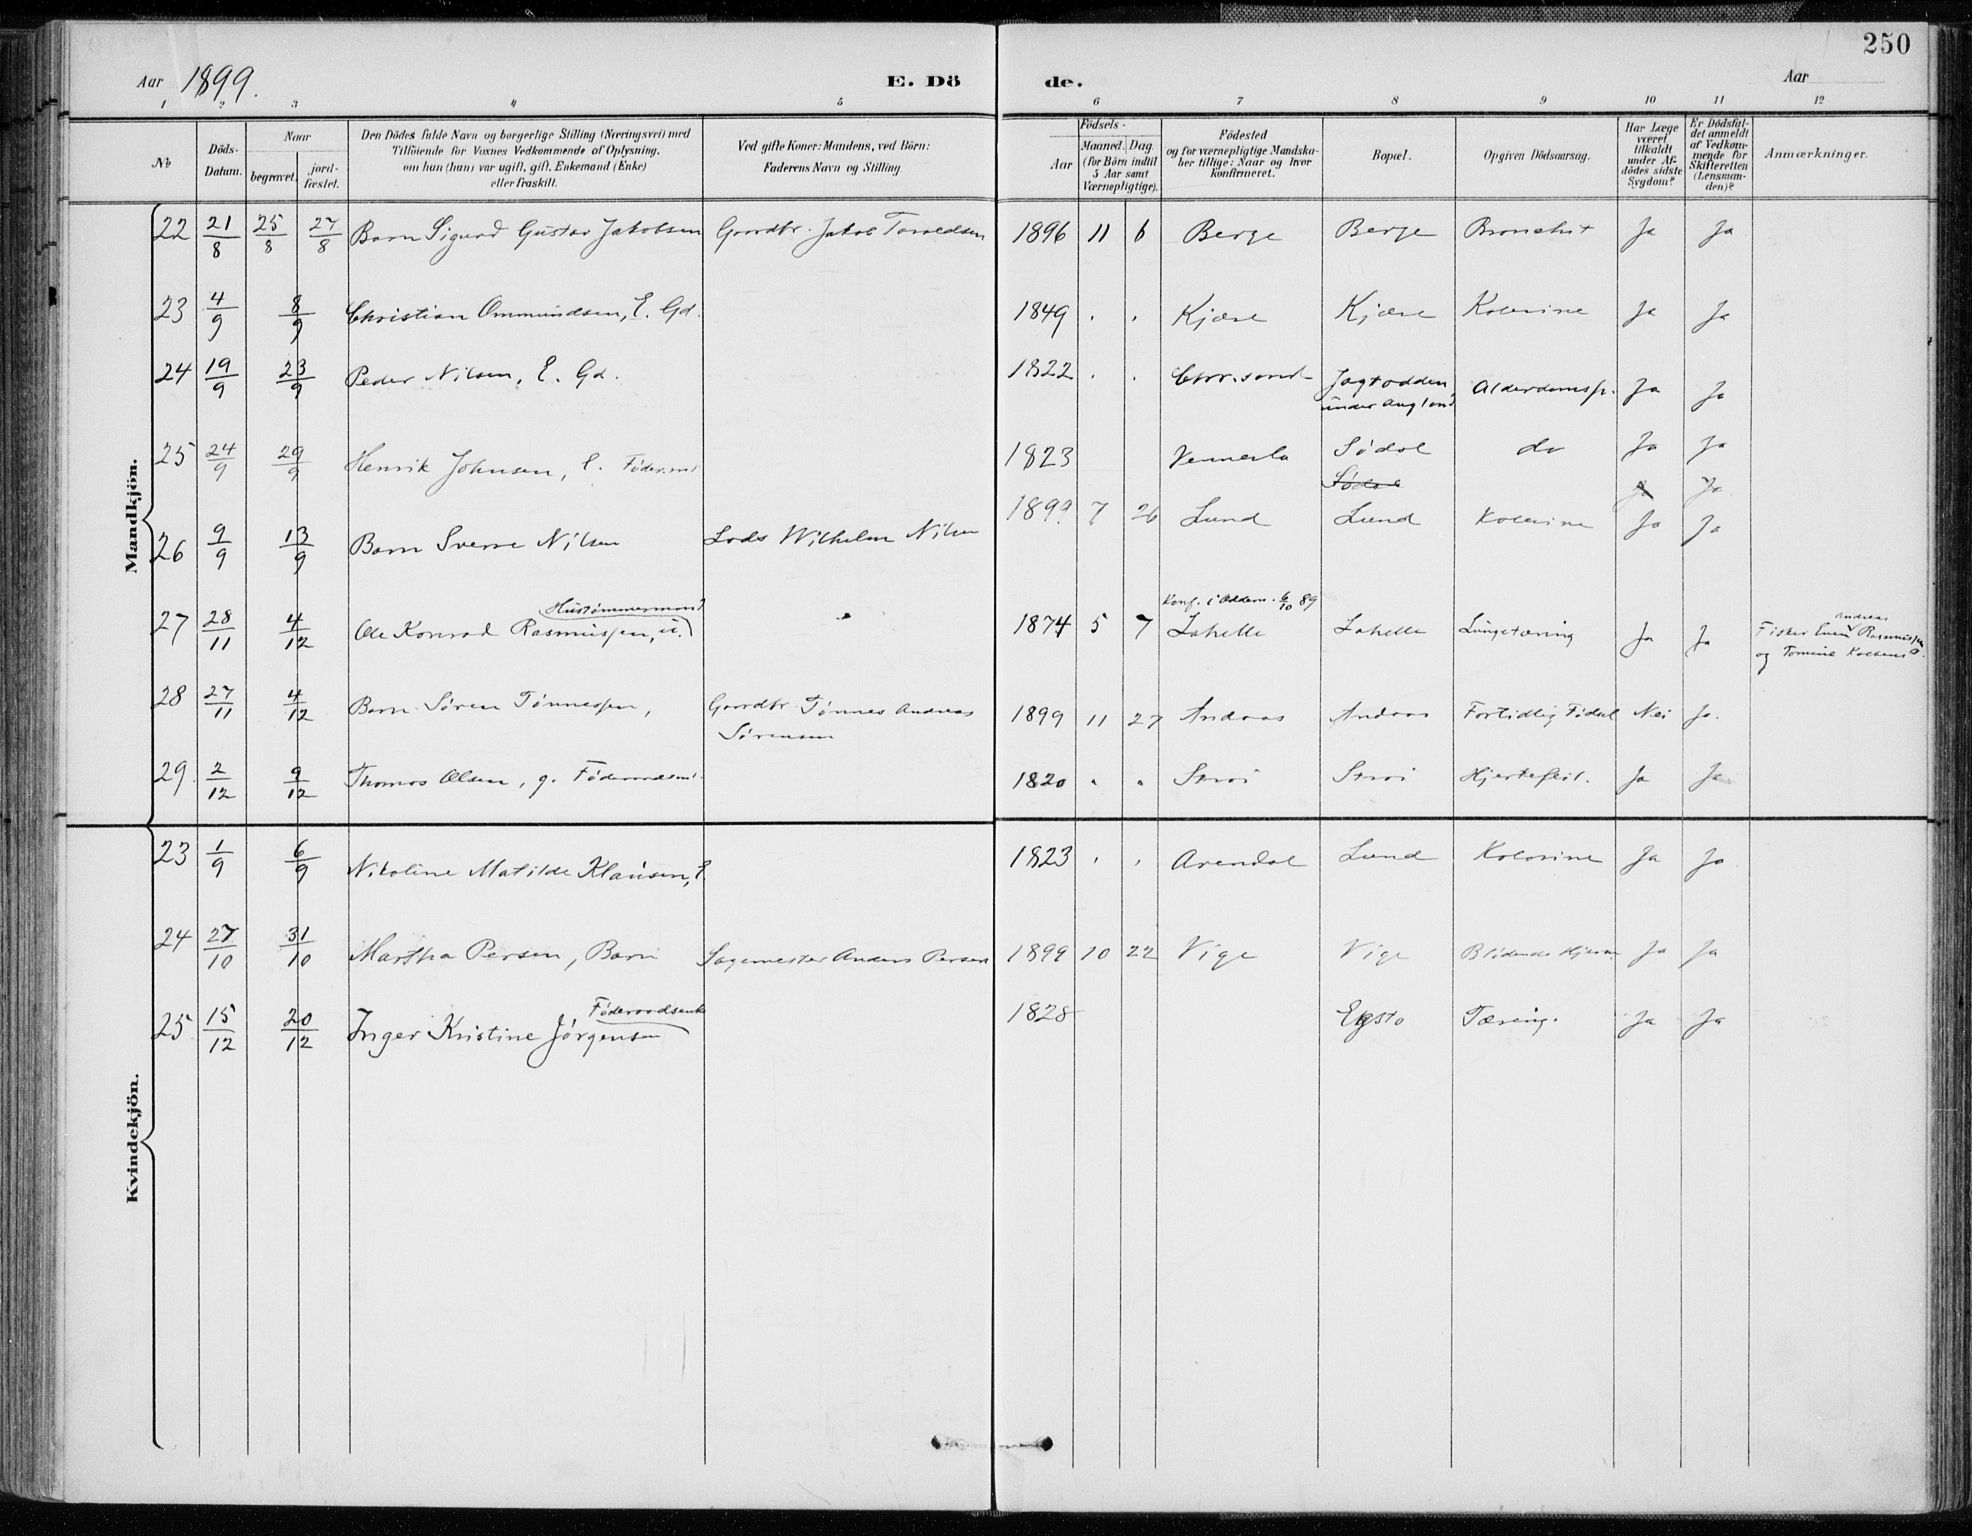 250
Aar 1899.
E. Dö de.
Aar
1 2 3 4 5 6 7 8 9 10 11 12
No
Döds-
Datum.
Naar
begravet.
jord-
fæstet.
Den Dödes fulde Navn og borgerlige Stilling (Næringsvei) med
Tilföiende for Voxnes Vedkommende af Oplysning,
om han (hun) var ugift, gift, Enkemand (Enke)
eller fraskilt.
Ved gifte Koner: Mandens, ved Börn:
Faderens Navn og Stilling.
Födsels-
Aar
Maaned. Dag
(for Börn indtil
5 Aar samt
Værnepligtige).
Födested
og for værnepligtige Mandska-
ber tillige: Naar og hvor
Konfirmeret.
Bopæl.
Opgiven Dödsaarsag.
Har Læge
været
tilkaldt
under Af-
dödes sidste
Sygdom?
Er Dödsfal-
det anmeldt
af Vedkom-
mende for
Skifteretten
(Lensman-
den)?
Anmærkninger.
Mandkjön.
22 21/8 25/8 27/8 Barn Sigurd Gustav Jakobsen Gaardbr. Jakob Torvedsen 1896 11 6 Berge Berge Bronchit Ja Ja
23 4/9 8/9 Christian Ommundsen, E. Gd. 1849 . . Kjære Kjære Kolerine Ja Ja
24 19/9 23/9 Peder Nilsen, E. Gd. 1822 . . Chr.sand Jagtodden Alderdomssv. Ja Ja
under Augland
25 24/9 29/9 Henrik Johnsen, E. Föder.m. 1823 Vennesla Södal do Ja Ja
Södal Ja Ja
26 9/9 13/9 Barn Sverre Nilsen Lods Wilhelm Nilsen 1899 7 26 Lund Lund Kolerine Ja Ja
Hustømmermand Konf. i Oddern. 6/10 89
27 28/11 4/12 Ole Konrad Rasmussen, u. 1874 5 7 Lahelle Lahelle Lungetæring Ja Ja Fisker Even Andreas Rasmussen
og Tomine
28 27/11 4/12 Barn Sören Tönnessen, Gaardbr. Tönnes Andreas 1899 11 27 Andaas Andaas Fortidlig Födsel Nei Ja.
Sörensen
29. 2/12 9/12 Thomas Olsen, g. Föderaadsm. 1820 " " Strai Strai Hjertefeil. Ja Ja
Kvindekjön.
23 1/9 6/9 Nikoline Matilde Klausen, E. 1823 . . Arendal Lund Kolerine Ja Ja
24 27/10 31/10 Martha Persen, Barn Sagemester Anders Persen 1899 10 22 Vige Vige Ja Ja
Föderaadsenke
25 15/12 20/12 Inger Kristine Jörgensen 1828 Egsto Tæring. Ja Ja